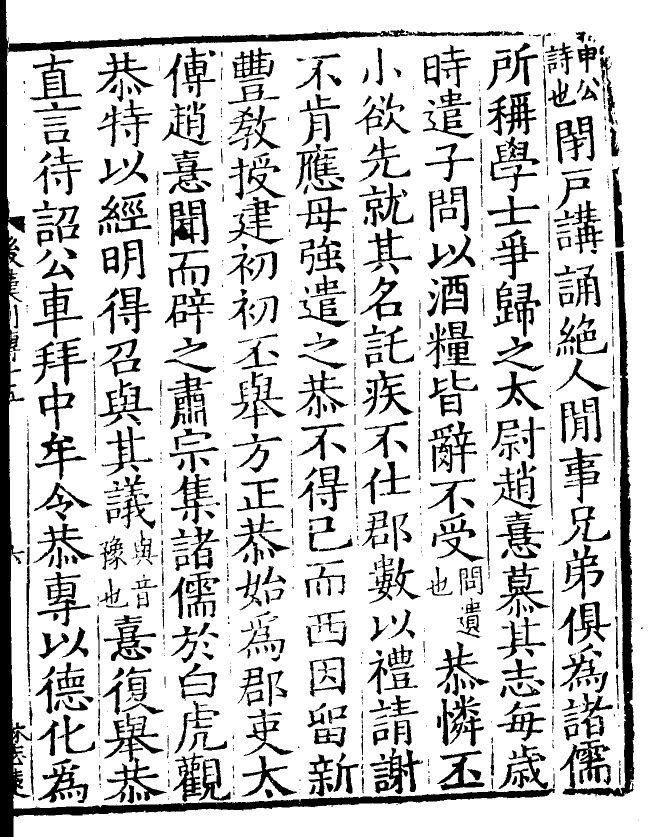 申公詩也閉戸講誦絶人間事兄弟俱為諸儒
所稱學士爭歸之太尉趙憙慕其志每歳
時遣子問以酒糧皆辭不受問遺也恭憐丕
小欲先就其名託疾不仕郡數以禮請謝
不肯應母強遣之恭不得已而西因留新
豐教授建初初丕舉方正恭始為郡吏太
傅趙憙聞而辟之肅宗集諸儒於白虎觀
恭特以經明得召與其議與音豫也憙復舉恭
直言待詔公車拜中牟令恭專以德化為
後漢列傳十五
六